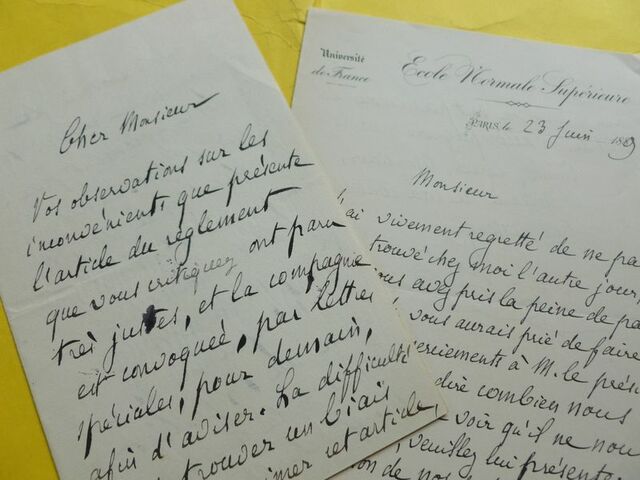 Cher Monsieur
Vos observations sur les
inconvénients que présente
l'article du règlement
que vous critiquez ont paru
très justes, et la compagnie
est convoquée, par lettres
spéciales, pour demain,
afin d'aviser. La difficulté
trouver un biais
et article
Université
de France
Ecole Normale Supérieure
PARIS, le 23 Juin 189
Monsieur
J'ai vivement regretté de ne pa
trouvé chez moi l'autre jour,
ous avez pris la peine de pa
vous aurais prié de faire
erciements à M. le prési
dire combien nous
voir qu'il ne nou
, veuillez lui présente
on de nos